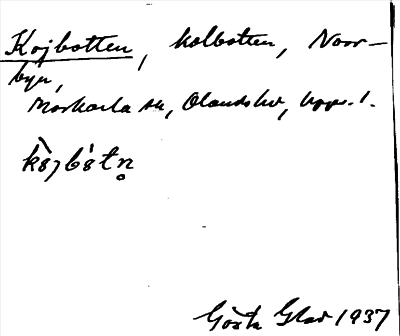 Kojbotten, kolbotten, Norr-
byn,
Morkarla sn, Olands hd, Upps. l.
kòjbótn̥
Gösta Glad 1937